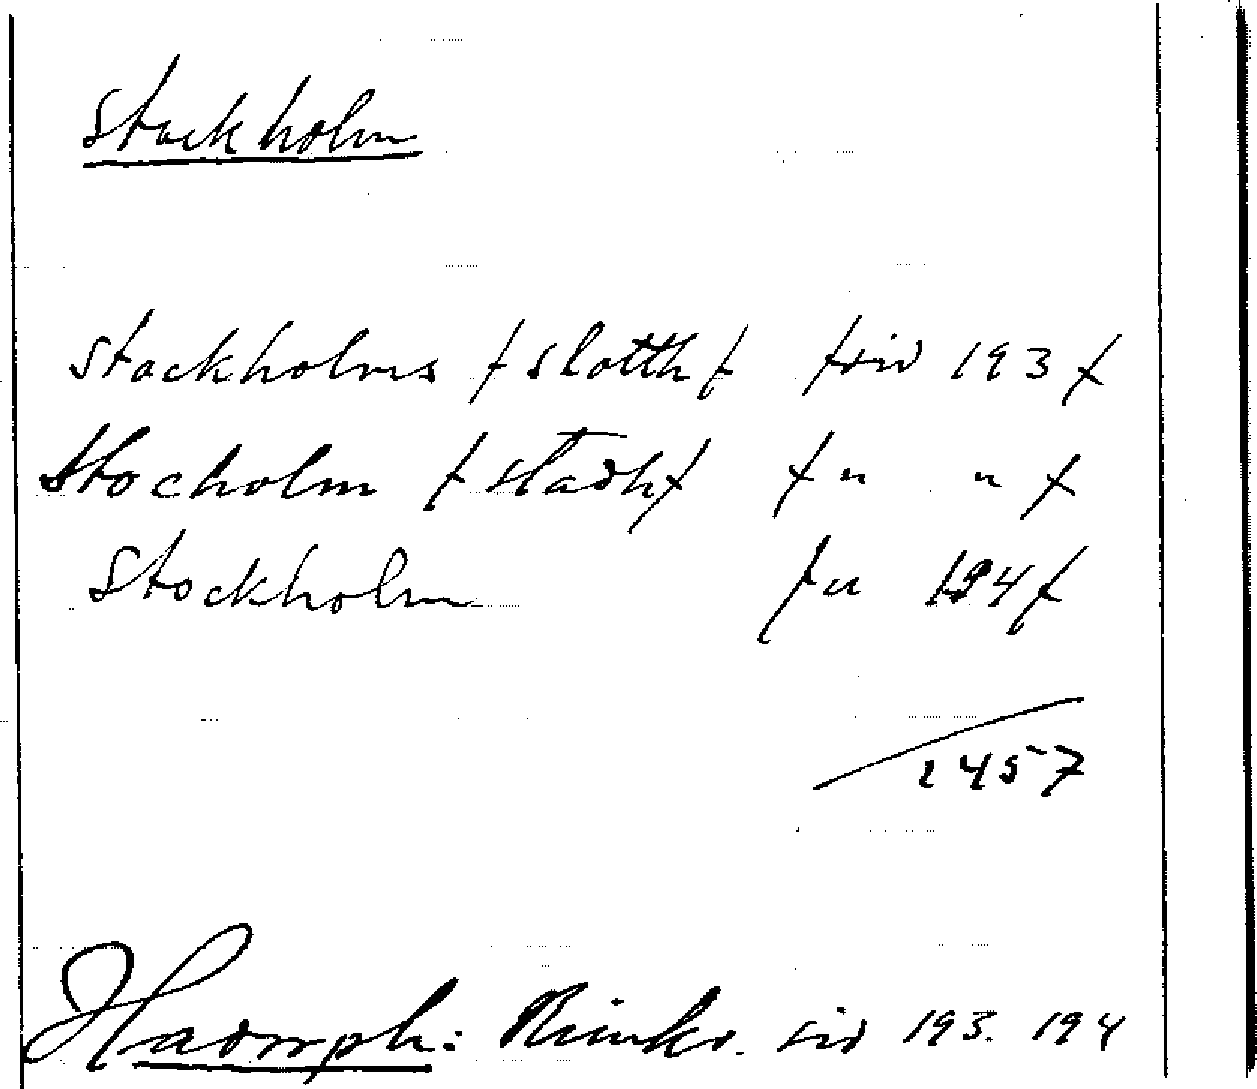 Stockholm
Stockholms / slotth / / sid 193 /
Stocholm / stadh / / " " /
Stockholm / " 194 /
1457
Hadorph: Rimkr. sid 193. 194